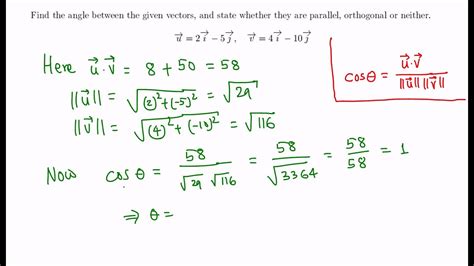 Find the angle between the given vectors, and state whether they are parallel, orthogonal or neither.
u⃗ = 2 i⃗ − 5 j⃗,   v⃗ = 4 i⃗ − 10 j⃗
Here u⃗ · v⃗ = 8 + 50 = 58
||u⃗|| = √((2)² + (-5)²) = √29
||v⃗|| = √((4)² + (-10)²) = √116
cosθ = u⃗ · v⃗ / ||u⃗|| ||v⃗||
Now cosθ = 58 / √29 √116 = 58 / √3364 = 58/58 = 1
⇒ θ =